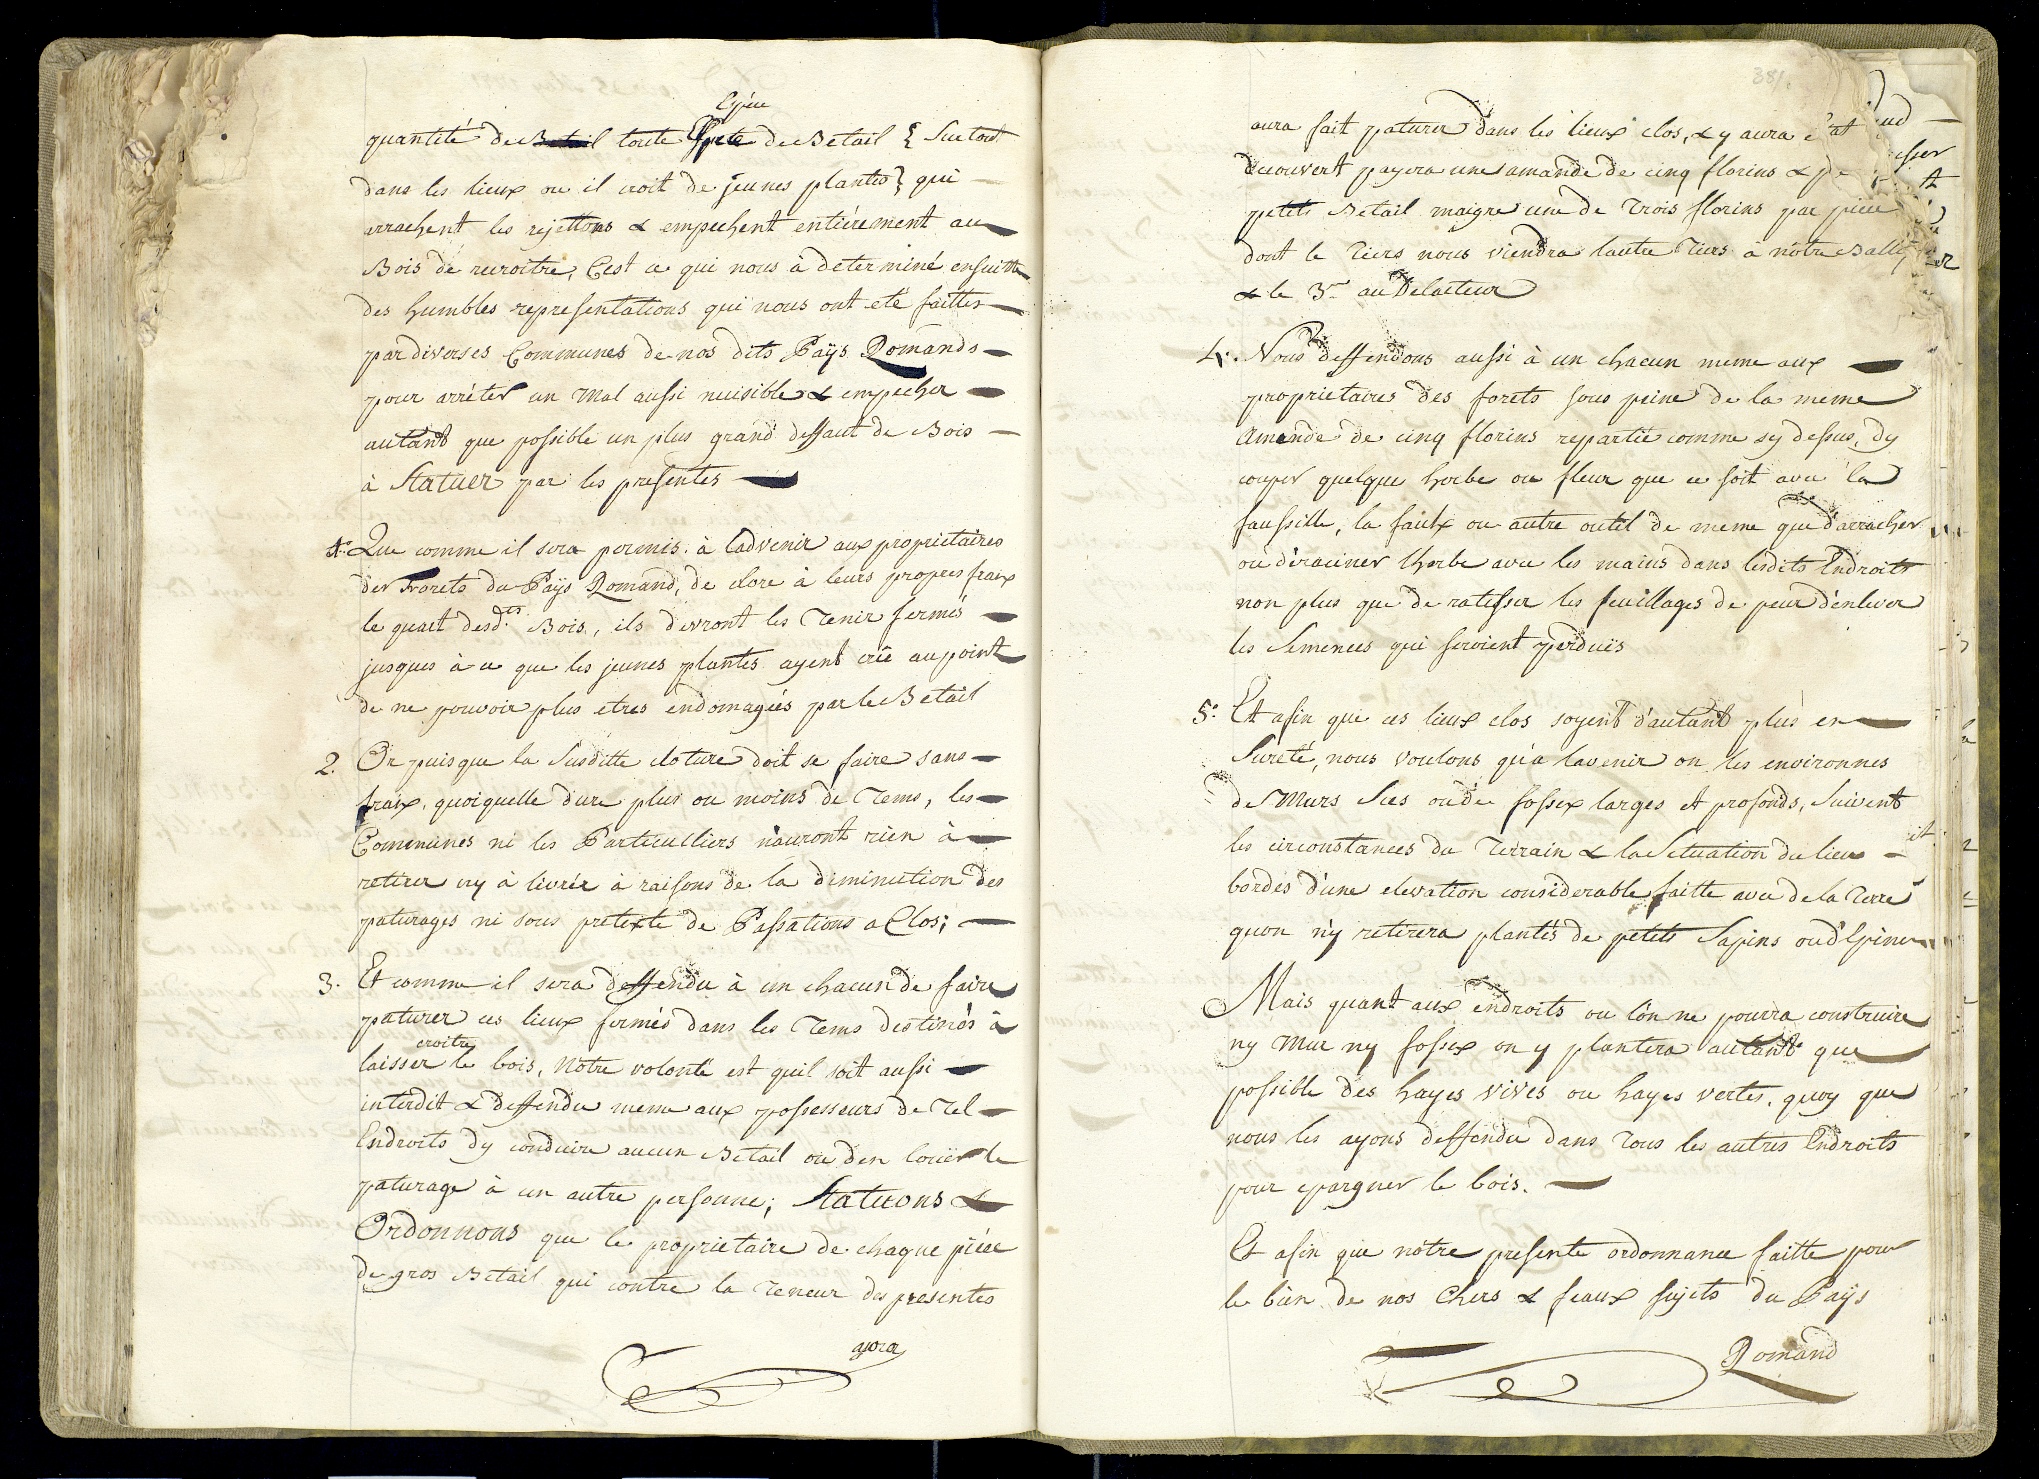 Espéce
quantité de Betail toute Espece de Betail { Surtout
dans les lieux ou il croit de jeunes plantes } qui
arrachent les rejettons & empechent entiérement au
Bois de recroitre, C'est ce qui nous à determiné ensuitte
des humbles representations qui nous ont eté faittes
par diverses Communes de nos dits Païs Romands
pour arréter un mal aussi nuisible & empecher
autant que possible un plus grand deffaut de Bois
à Statuer par les presentes
1.° Que comme il sera permis à ladvenir aux proprietaires
des Forets du Païs Romand, de clore à leurs propres fraix
le quart desd.ts Bois, ils devront les tenir fermés
jusques à ce que les jeunes plantes ayent crüe au point
de ne pouvoir plus etres endomagées par le Betail
2. Or puisque la Susditte cloture doit se faire sans
fraix, quoiquelle dure plus ou moins de tems, les
Communes ni les Particulliers n'auront rien à
retirer ny à livrér à raisons de la diminution des
paturages ni sous pretexte de Passations a Clos;
3. Et comme il sera deffendu à un chacun de faire
paturer ces lieux fermés dans les tems destinés à
croitre
laisser le bois, Nôtre volonté est quil soit aussi
interdit & deffendu meme aux possesseurs de tel
Endroits dy conduire aucun Betail ou den louër le
paturage à un autre personne; Statuons &
Ordonnons que le proprietaire de chaque piéce
de gros Betail qui contre la teneur des presentes
aura
381.
aura fait paturer dans les lieux clos, & y aura été
decouvert payera une amande de cinq florins & p
petits Betail maigre une de trois florins par piece
dont le tiers nous viendra l'autre tiers à nôtre Ballif
& le 3.me au Delacteur
4.° Nous deffendons aussi à un chacun meme aux
proprietaires des forets sous peine de la meme
amande de cinq florins repartie comme sy dessus, dy
couper quelque herbe ou fleur que ce soit avec la
faussille, la faulx ou autre outil de meme que d'arracher
ou déraciner lherbe avec les mains dans lesdits Endroits
non plus que de ratisser les feuillages de peur d'enlever
les Semences qui seroient perduës
5.° Et afin que ces lieux clos soyent d'autant plus en
Sureté, nous voulons qu'à lavenir on les environnes
de Murs Secs ou de fossex larges et profonds, Suivent
les circonstances du terrain & la Situation du lieu
bordes d'une elevation considerable faitte avec de la terre
quon n'y retirera plantés de petits Sapins ou d'Epines
Mais quant aux endroits ou l'on ne pourra construire
ny Mur ny fossex on y plantera autant que
possible des hayes vives ou hayes vertes, quoy que
nous les ayons deffendu dans tous les autres Endroits
pour epargner le bois.
Et afin que nôtre presente ordonnance faitte pour
le bien de nos Chers & feaux sujets du Païs
Romand